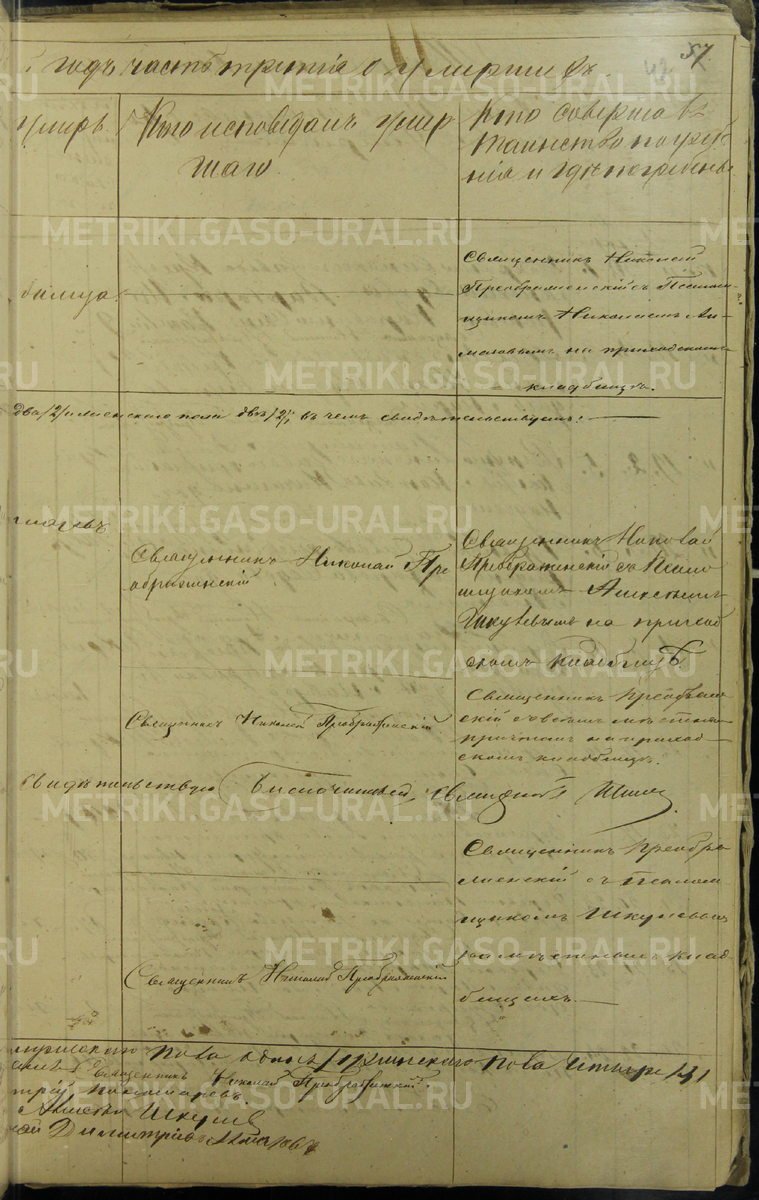 57
годъ часть третія о умершихъ.
умеръ.
Кто исповѣдалъ умер
шаго
Кто совершалъ
таинство погребе
нія и гдѣ погребены
Священникъ Николай
Преображенскій съ Псалом
щикомъ Николаемъ Ал-
мазовымъ на приходскомъ
кладбищѣ.
два /2/ женскаго пола двѣ /2/ въ чемъ свидѣтельствуемъ:
Священникъ Николай Пре
ображенскій
Священникъ Николай
Преображенскій съ Псалом
щикомъ Алексѣемъ
Шкулевымъ на приход
скомъ кладбищѣ.
Священникъ Николай Преображенскій
Священникъ Преображен
скій съ своимъ мѣстнымъ
причтомъ на приход-
скомъ кладбищѣ.
свидѣтельствую Священникъ
Священникъ Преобра
женскій съ Псалом
щикомъ Шкулевымъ
на мѣстномъ клад
бищѣ.
Священникъ Николай Преображенскій
мужскаго пола одинъ женскаго пола четыре /4/
Священникъ Николай Преображенскій
Алексѣй Шкулев
Димитріевъ Алмазовъ
METRIKI.GASO-URAL.RU